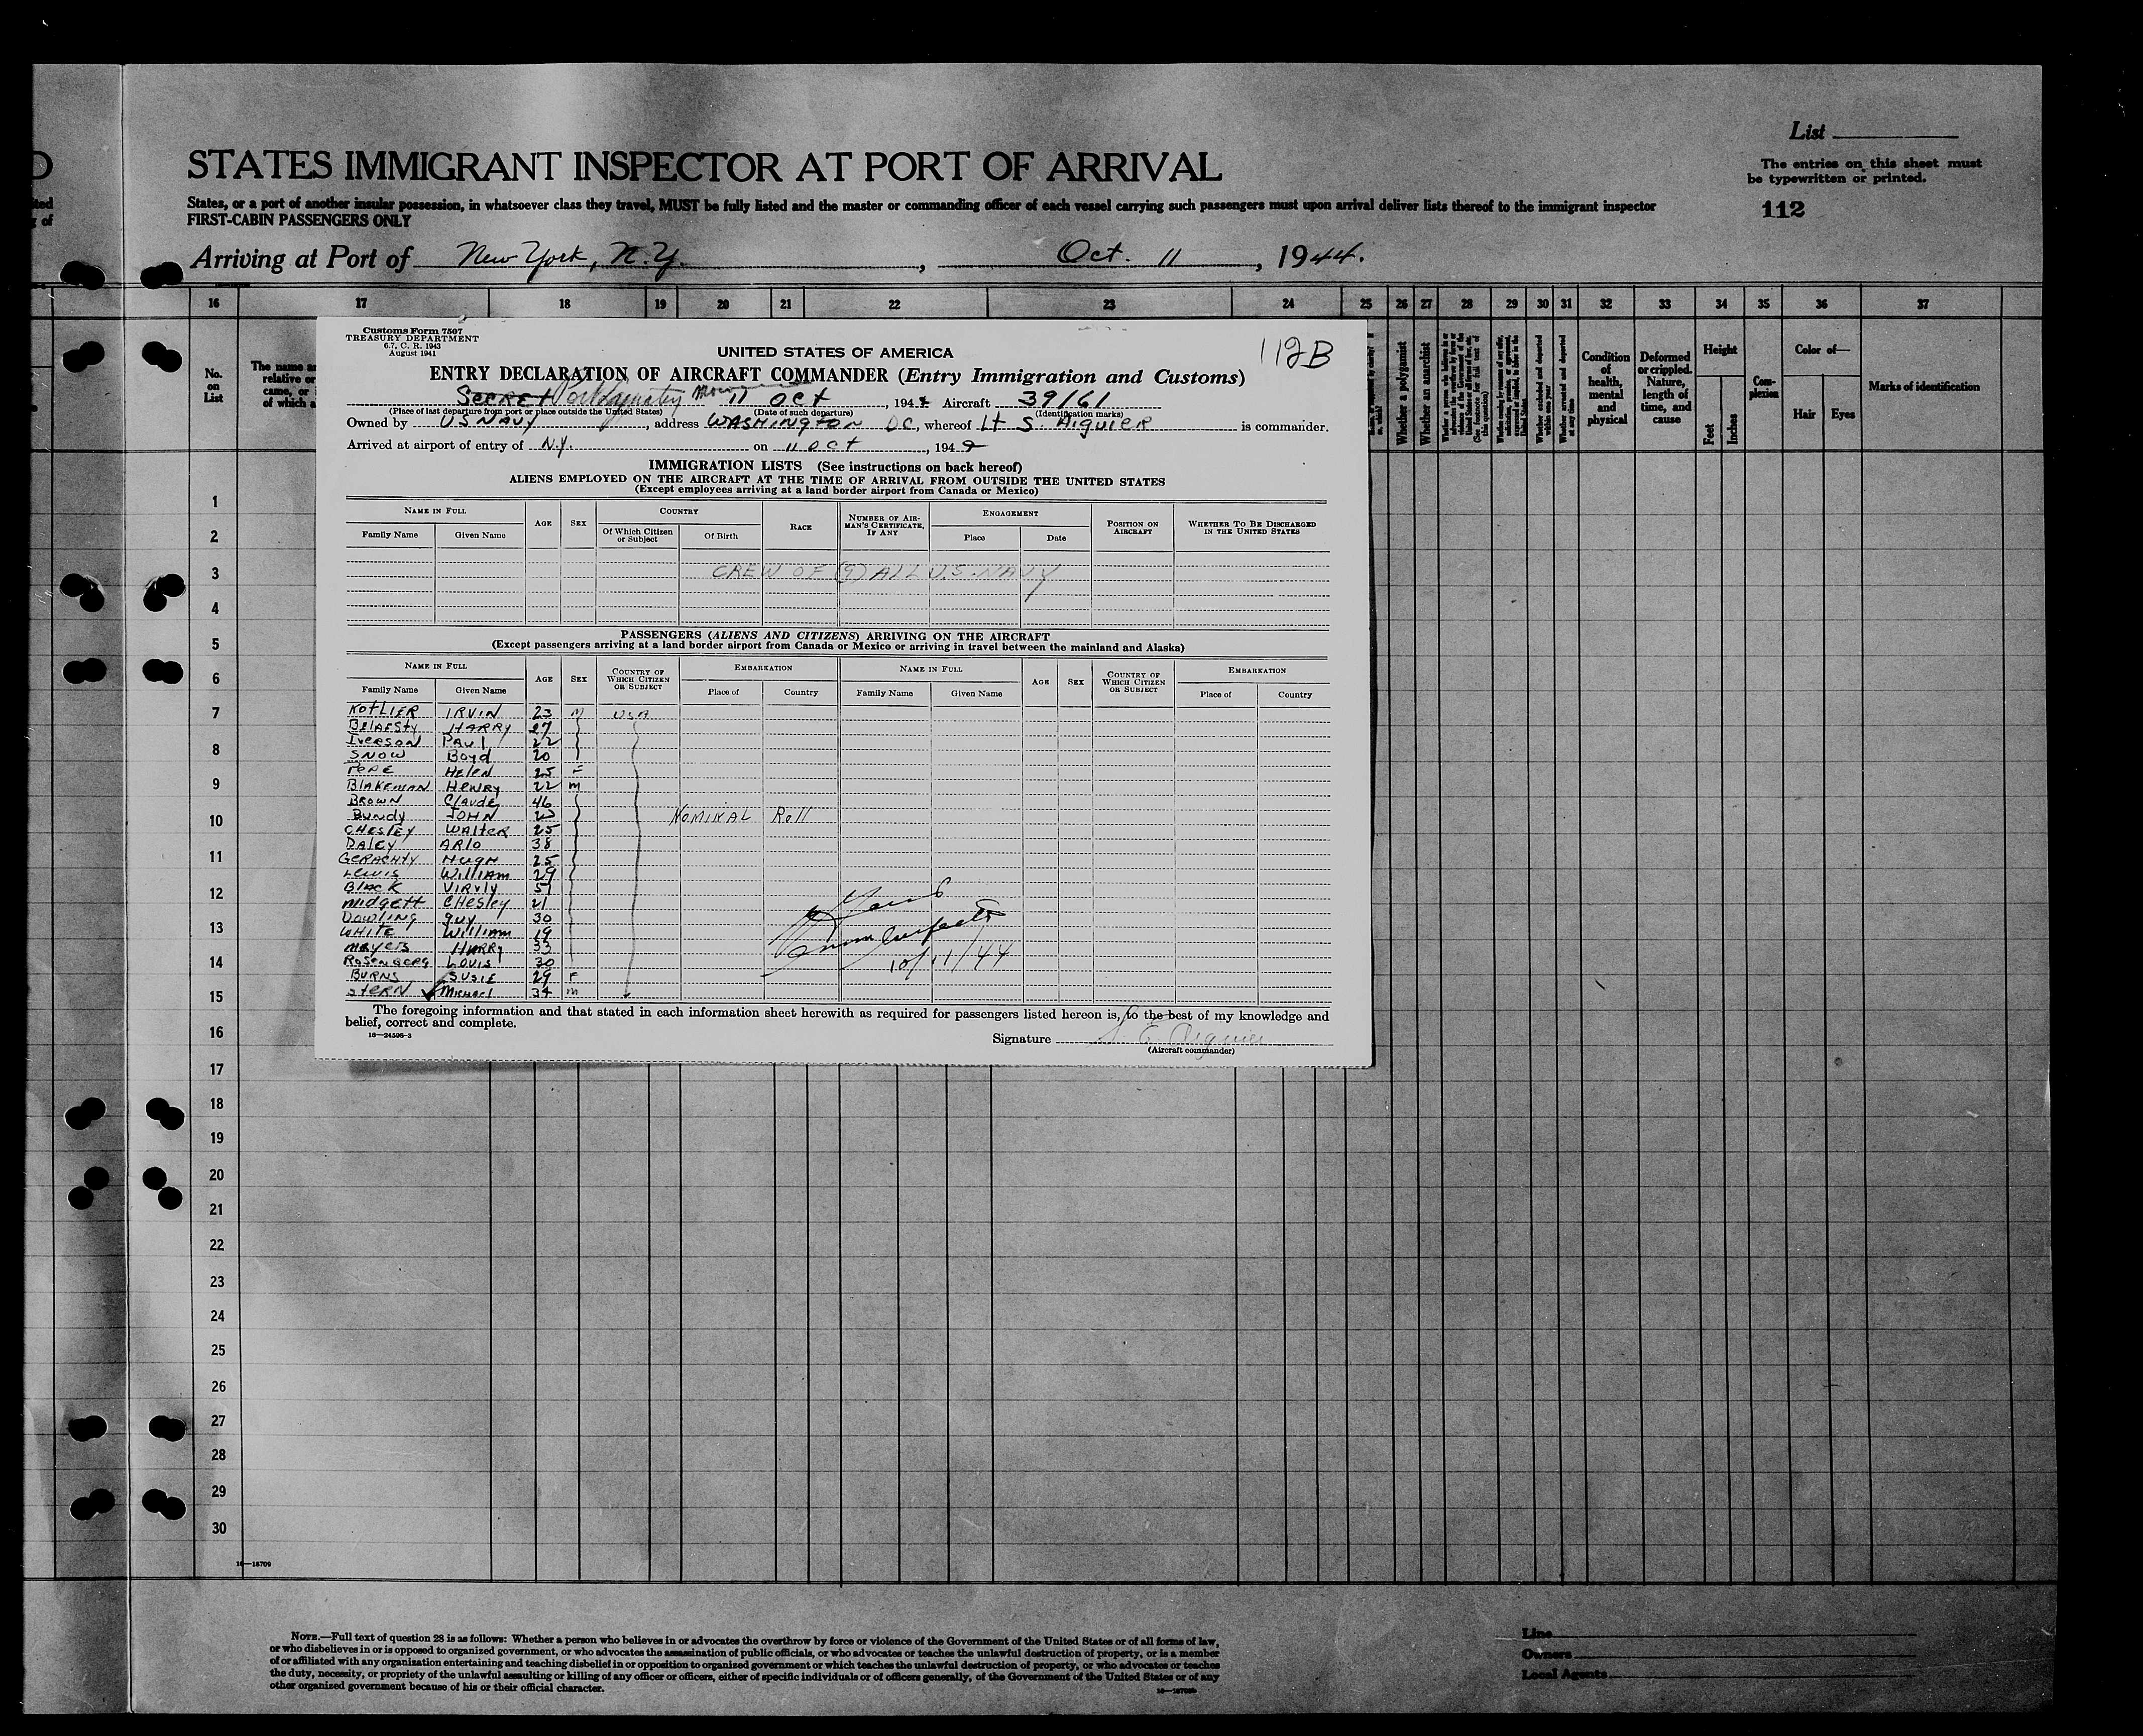 List
STATES IMMIGRANT INSPECTOR AT PORT OF ARRIVAL
The entries on this sheet must
be typewritten or printed.
States, or a port of another insular possession, in whatsoever class they travel, MUST be fully listed and the master or commanding officer of each vessel carrying such passengers must upon arrival deliver lists thereof to the immigrant inspector
FIRST-CABIN PASSENGERS ONLY
112
Arriving at Port of New York, N.Y., Oct. 11, 1944.
16 17 18 19 20 21 22 23 24 25 26 27 28 29 30 31 32 33 34 35 36 37
No.
on
List
The name a
relative or
came, or
of which a
Whether a polygamist
Whether an anarchist
Condition
of
health,
mental
and
physical
Deformed
or crippled.
Nature,
length of
time, and
cause
Height
Feet
Inches
Com-
plexion
Color of—
Hair
Eyes
Marks of identification
Customs Form 7507
TREASURY DEPARTMENT
6.7, C. R. 1943
August 1941
112B
UNITED STATES OF AMERICA
ENTRY DECLARATION OF AIRCRAFT COMMANDER (Entry Immigration and Customs)
SECRET 11 OCT, 194 Aircraft 39161
(Place of last departure from port or place outside the United States) (Date of such departure) (Identification marks)
Owned by US NAVY, address WASHINGTON DC, whereof Lt S. Aiguier is commander.
Arrived at airport of entry of N.Y. on 11 OCT, 194
IMMIGRATION LISTS (See instructions on back hereof)
ALIENS EMPLOYED ON THE AIRCRAFT AT THE TIME OF ARRIVAL FROM OUTSIDE THE UNITED STATES
(Except employees arriving at a land border airport from Canada or Mexico)
NAME IN FULL
Family Name
Given Name
AGE
SEX
COUNTRY
Of Which Citizen
or Subject
Of Birth
RACE
NUMBER OF AIR-
MAN'S CERTIFICATE,
IF ANY
ENGAGEMENT
Place
Date
POSITION ON
AIRCRAFT
WHETHER TO BE DISCHARGED
IN THE UNITED STATES
CREW OF (9) ALL U.S. NAVY
PASSENGERS (ALIENS AND CITIZENS) ARRIVING ON THE AIRCRAFT
(Except passengers arriving at a land border airport from Canada or Mexico or arriving in travel between the mainland and Alaska)
NAME IN FULL
Family Name
Given Name
AGE
SEX
COUNTRY OF
WHICH CITIZEN
OR SUBJECT
EMBARKATION
Place of
Country
NAME IN FULL
Family Name
Given Name
AGE
SEX
COUNTRY OF
WHICH CITIZEN
OR SUBJECT
EMBARKATION
Place of
Country
KOTLIER IRVIN 23 M USA
BELAFSTY HARRY 27
IVERSON PAUL 22
SNOW Boyd 20
POPE Helen 25 F
BLAKEMAN HENRY 22 M
BROWN Claude 46
BUNdy JOHN
NOMINAL Roll
CHESLEY WALTER 25
DALEY ARLO 38
GERAGHTY HUGH 25
LEWIS WILLIAM 29
BLACK 51
MIDGETT CHESLEY 21
DOWLING GUY 30
WHITE WILLIAM 19
MEYERS HARRY 33
ROSENBERG LOUIS 30
BURNS SUSIE 29 F
STERN MICHAEL 34 M
10/11/44
The foregoing information and that stated in each information sheet herewith as required for passengers listed hereon is, to the best of my knowledge and
belief, correct and complete.
16—24598-3
Signature S E Aiguier
(Aircraft commander)
1
2
3
4
5
6
7
8
9
10
11
12
13
14
15
16
17
18
19
20
21
22
23
24
25
26
27
28
29
30
16—18709
NOTE.—Full text of question 28 is as follows: Whether a person who believes in or advocates the overthrow by force or violence of the Government of the United States or of all forms of law,
or who disbelieves in or is opposed to organized government, or who advocates the assassination of public officials, or who advocates or teaches the unlawful destruction of property, or is a member
of or affiliated with any organization entertaining and teaching disbelief in or opposition to organized government or which teaches the unlawful destruction of property, or who advocates or teaches
the duty, necessity, or propriety of the unlawful assaulting or killing of any officer or officers, either of specific individuals or of officers generally, of the Government of the United States or of any
other organized government because of his or their official character.
Line
Owners
Local Agents